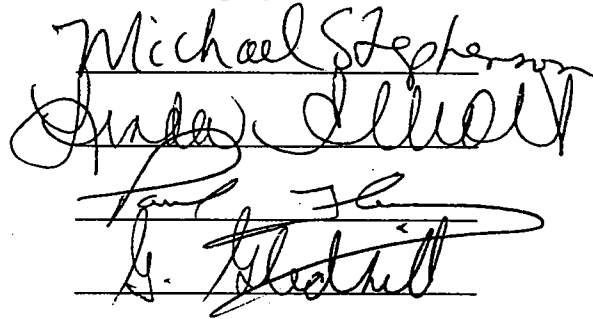 Michael Stephenson
Linda Elliott
Paul
G. Gledhill